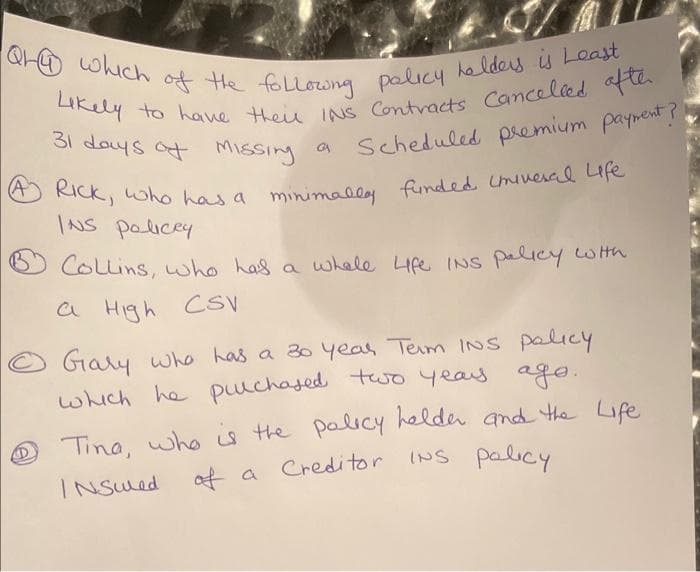 Q1-④ which of the following policy holders is Least
Likely to have their INS Contracts Canceled after
31 days of Missing a Scheduled premium payment?
Ⓐ Rick, who has a minimally funded universal Life
INS policey
Ⓑ Collins, who has a whole Life INS policy with
a High CSV
Ⓒ Gary who has a 30 year Term INS policy
which he purchased two years ago.
Ⓓ Tina, who is the policy holder and the Life
INSured of a Creditor INS policy